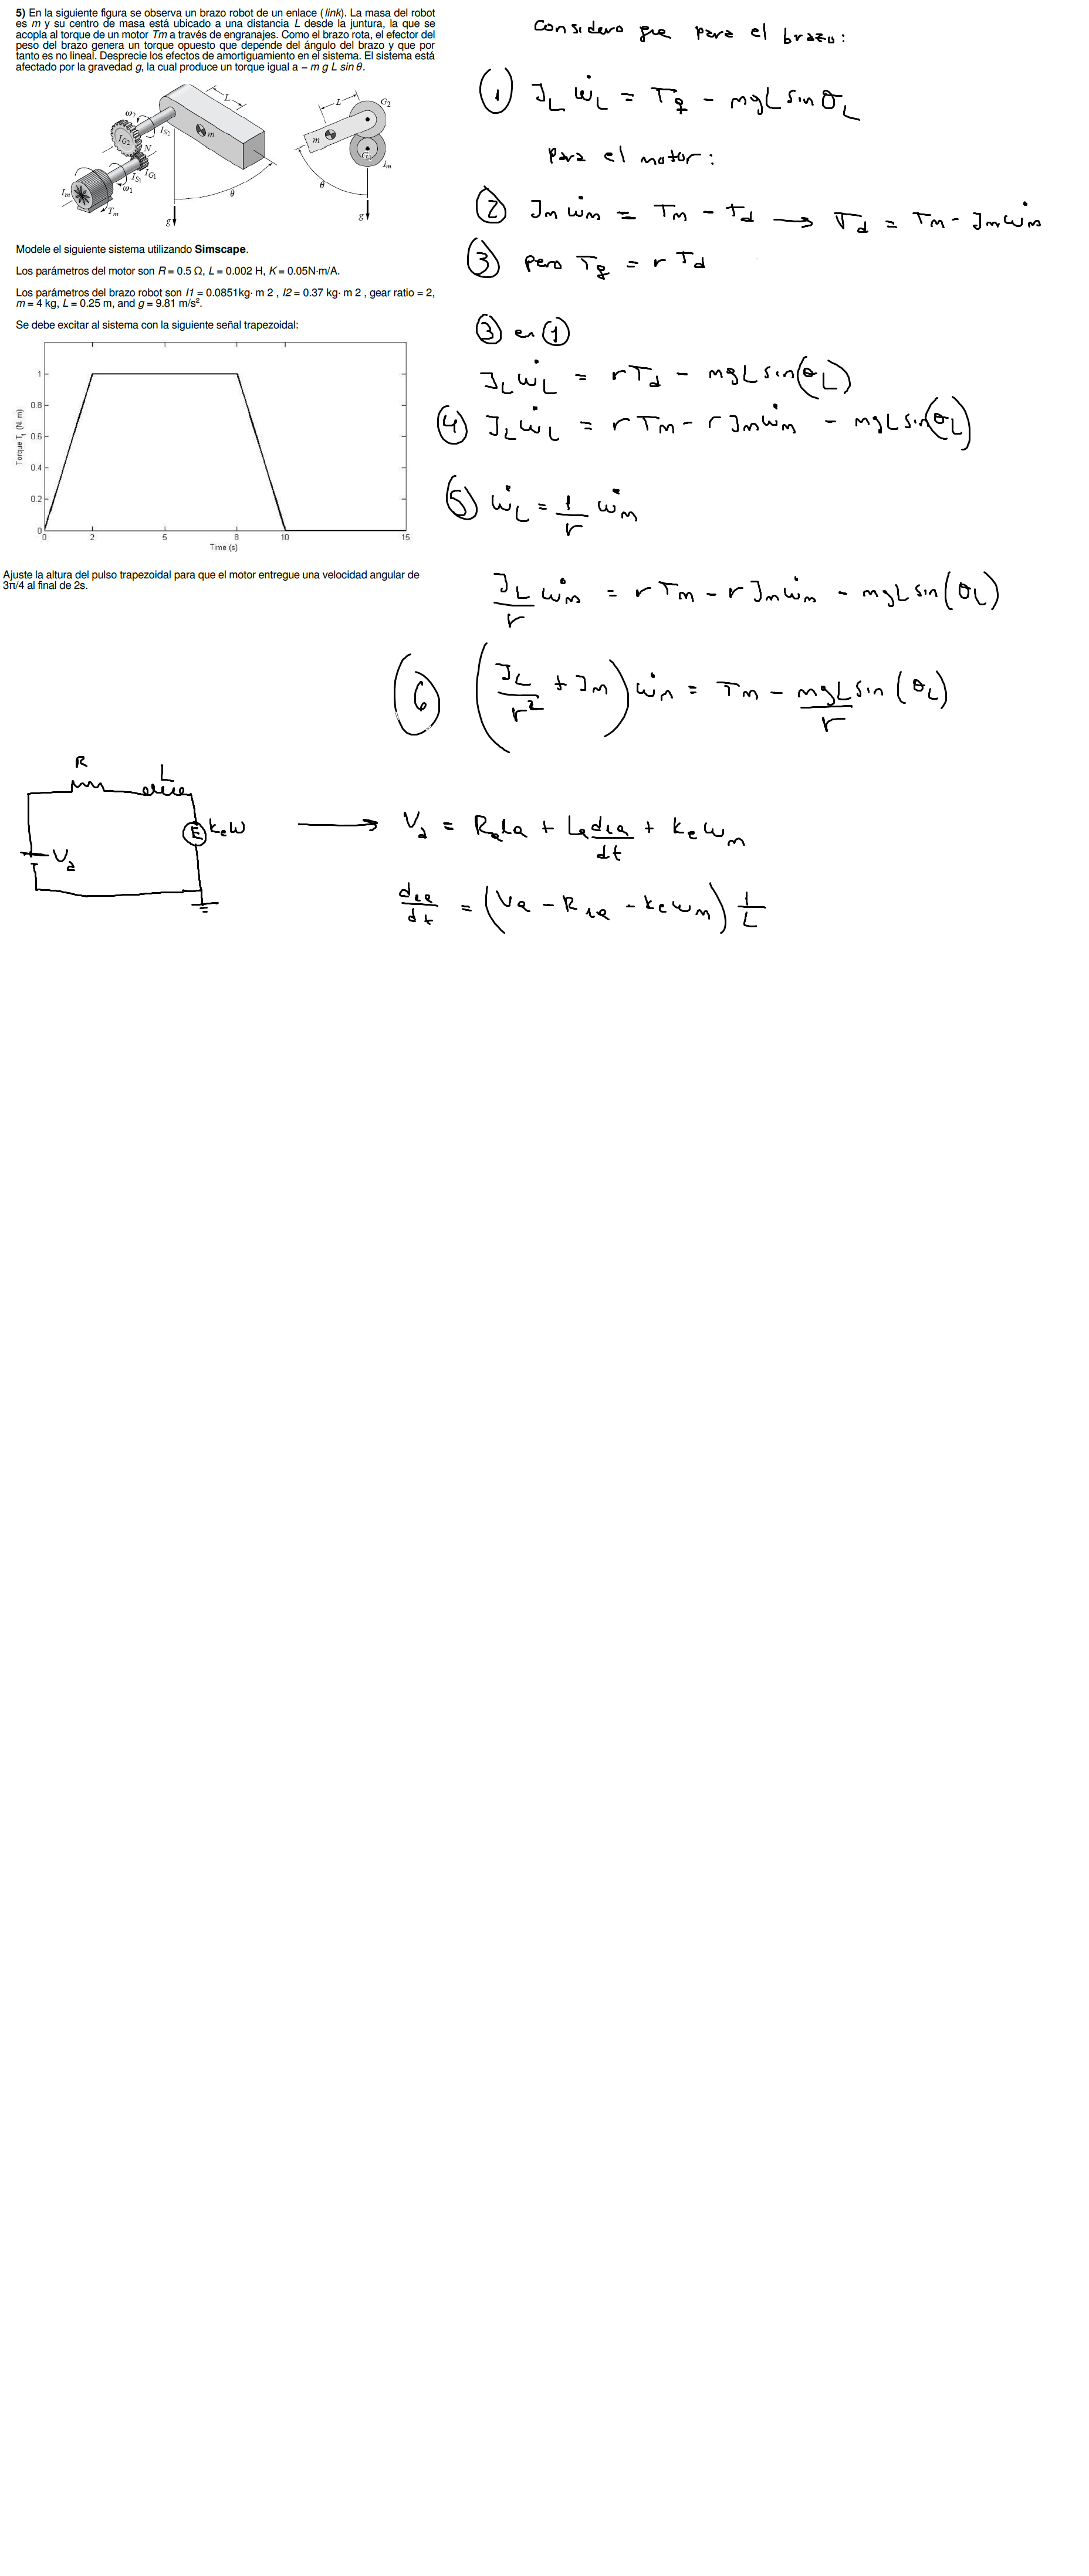 5) En la siguiente figura se observa un brazo robot de un enlace (link). La masa del robot
es m y su centro de masa está ubicado a una distancia L desde la juntura, la que se
acopla al torque de un motor Tm a través de engranajes. Como el brazo rota, el efector del
peso del brazo genera un torque opuesto que depende del ángulo del brazo y que por
tanto es no lineal. Desprecie los efectos de amortiguamiento en el sistema. El sistema está
afectado por la gravedad g, la cual produce un torque igual a − m g L sin θ.
L
ω₂
I_S₂
I_G₂
N
m
I_S₁
I_G₁
ω₁
I_m
T_m
g
θ
L
G₂
m
G₁
I_m
θ
g
Modele el siguiente sistema utilizando Simscape.
Los parámetros del motor son R = 0.5 Ω, L = 0.002 H, K = 0.05N·m/A.
Los parámetros del brazo robot son I1 = 0.0851kg· m 2 , I2 = 0.37 kg· m 2 , gear ratio = 2,
m = 4 kg, L = 0.25 m, and g = 9.81 m/s².
Se debe excitar al sistema con la siguiente señal trapezoidal:
1
0.8
0.6
0.4
0.2
0
0 2 5 8 10 15
Time (s)
Ajuste la altura del pulso trapezoidal para que el motor entregue una velocidad angular de
3π/4 al final de 2s.
Considero que para el brazo:
① J_L ω̇_L = T_g − mgL sin θ_L
para el motor:
② J_m ω̇_m = T_m − T_d → T_d = T_m − J_m ω̇_m
③ pero T_g = r T_d
③ en ①
J_L ω̇_L = r T_d − mgL sin(θ_L)
④ J_L ω̇_L = r T_m − r J_m ω̇_m − mgL sin(θ_L)
⑤ ω̇_L = 1/r ω̇_m
J_L/r ω̇_m = r T_m − r J_m ω̇_m − mgL sin(θ_L)
⑥ (J_L/r² + J_m) ω̇_m = T_m − mgL/r sin(θ_L)
R
L
E
k_e ω
V_a
→ V_a = R_a i_a + L_a di_a/dt + k_e ω_m
di_a/dt = (V_a − R i_a − k_e ω_m) 1/L